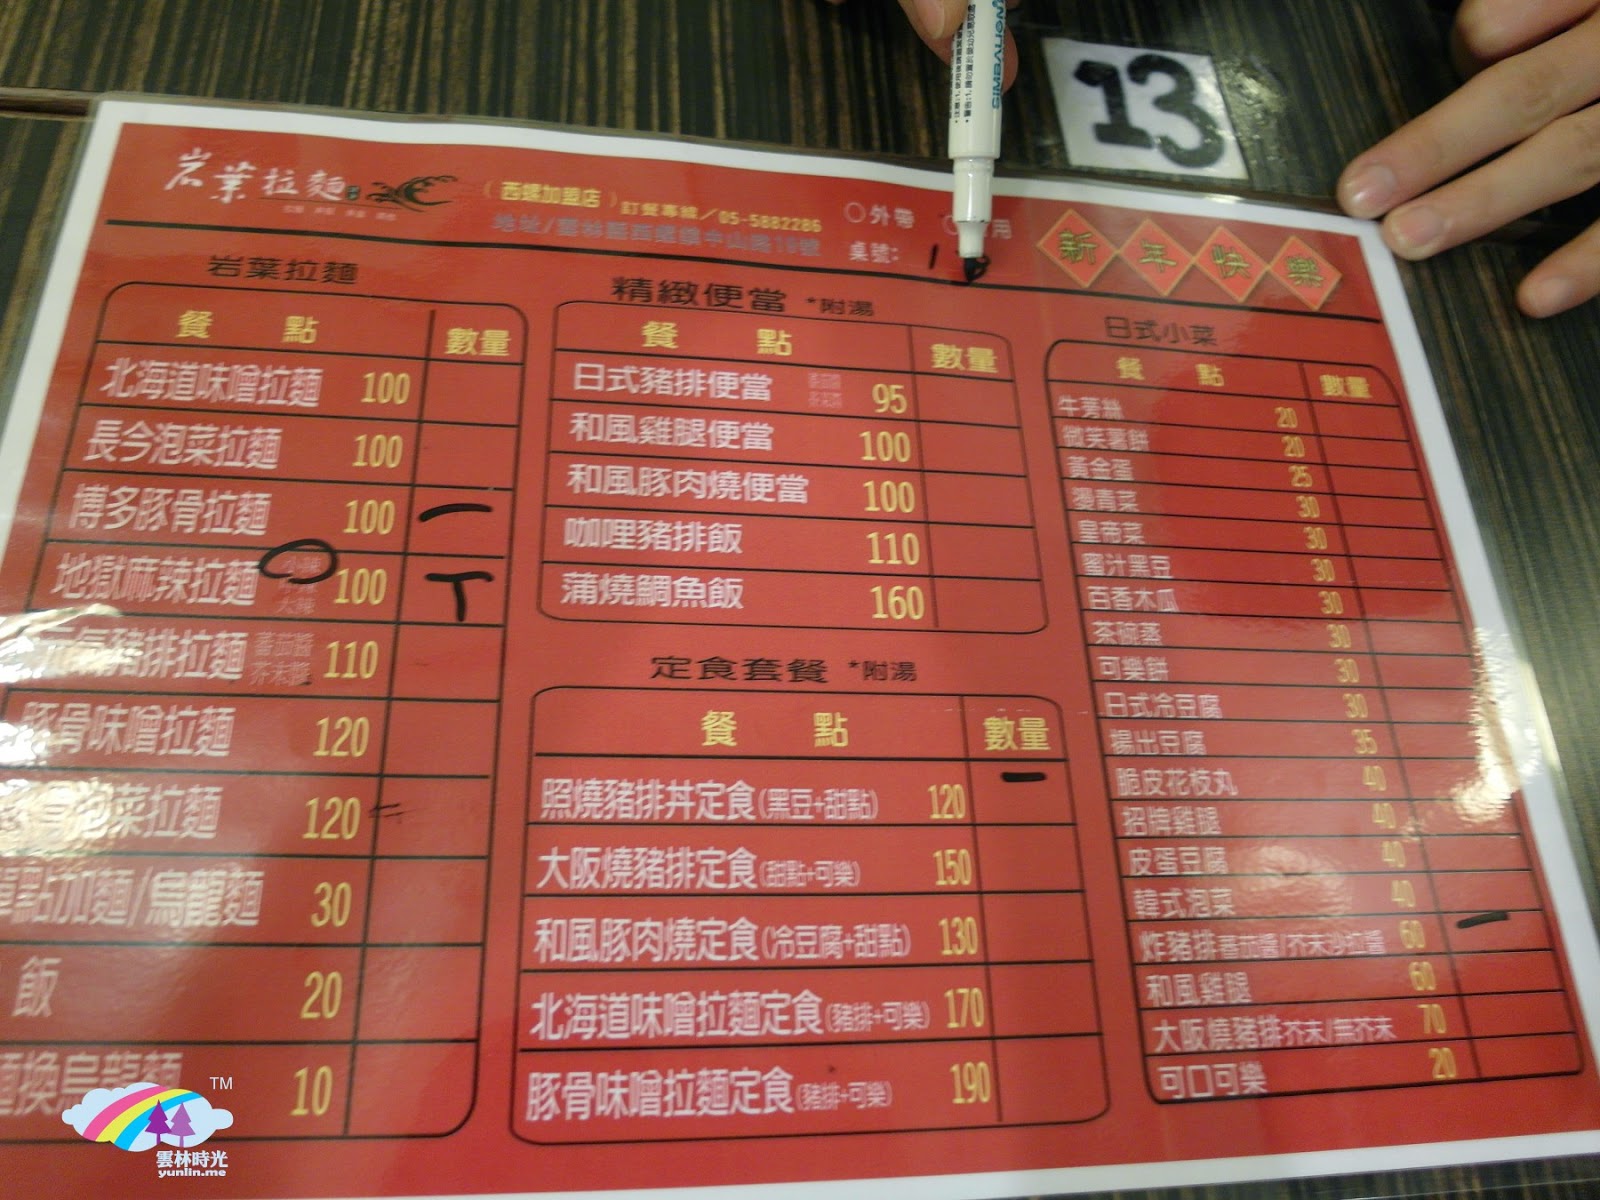 SIMBALION
13
岩葉拉麵
(西螺加盟店)訂餐專線/05-5882286
地址/雲林縣西螺鎮中山路19號
外帶
用
桌號:
新年快樂
岩葉拉麵
餐點 數量
北海道味噌拉麵 100
長今泡菜拉麵 100
博多豚骨拉麵 100 一
地獄麻辣拉麵 小辣 大辣 100 T
元氣豬排拉麵 蕃茄醬 芥末醬 110
豚骨味噌拉麵 120
泡菜拉麵 120
單點加麵/烏龍麵 30
飯 20
麵換烏龍麵 10
精緻便當 *附湯
餐點 數量
日式豬排便當 95
和風雞腿便當 100
和風豚肉燒便當 100
咖哩豬排飯 110
蒲燒鯛魚飯 160
定食套餐 *附湯
餐點 數量
照燒豬排丼定食(黑豆+甜點) 120 一
大阪燒豬排定食(甜點+可樂) 150
和風豚肉燒定食(冷豆腐+甜點) 130
北海道味噌拉麵定食(豬排+可樂) 170
豚骨味噌拉麵定食(豬排+可樂) 190
日式小菜
餐點 數量
牛蒡絲 20
微笑薯餅 20
黃金蛋 25
燙青菜 30
皇帝菜 30
蜜汁黑豆 30
百香木瓜 30
茶碗蒸 30
可樂餅 30
日式冷豆腐 30
揚出豆腐 35
脆皮花枝丸 40
招牌雞腿 40
皮蛋豆腐 40
韓式泡菜 40
炸豬排蕃茄醬/芥末沙拉醬 60 一
和風雞腿 60
大阪燒豬排芥末/無芥末 70
可口可樂 20
TM
雲林時光
yunlin.me